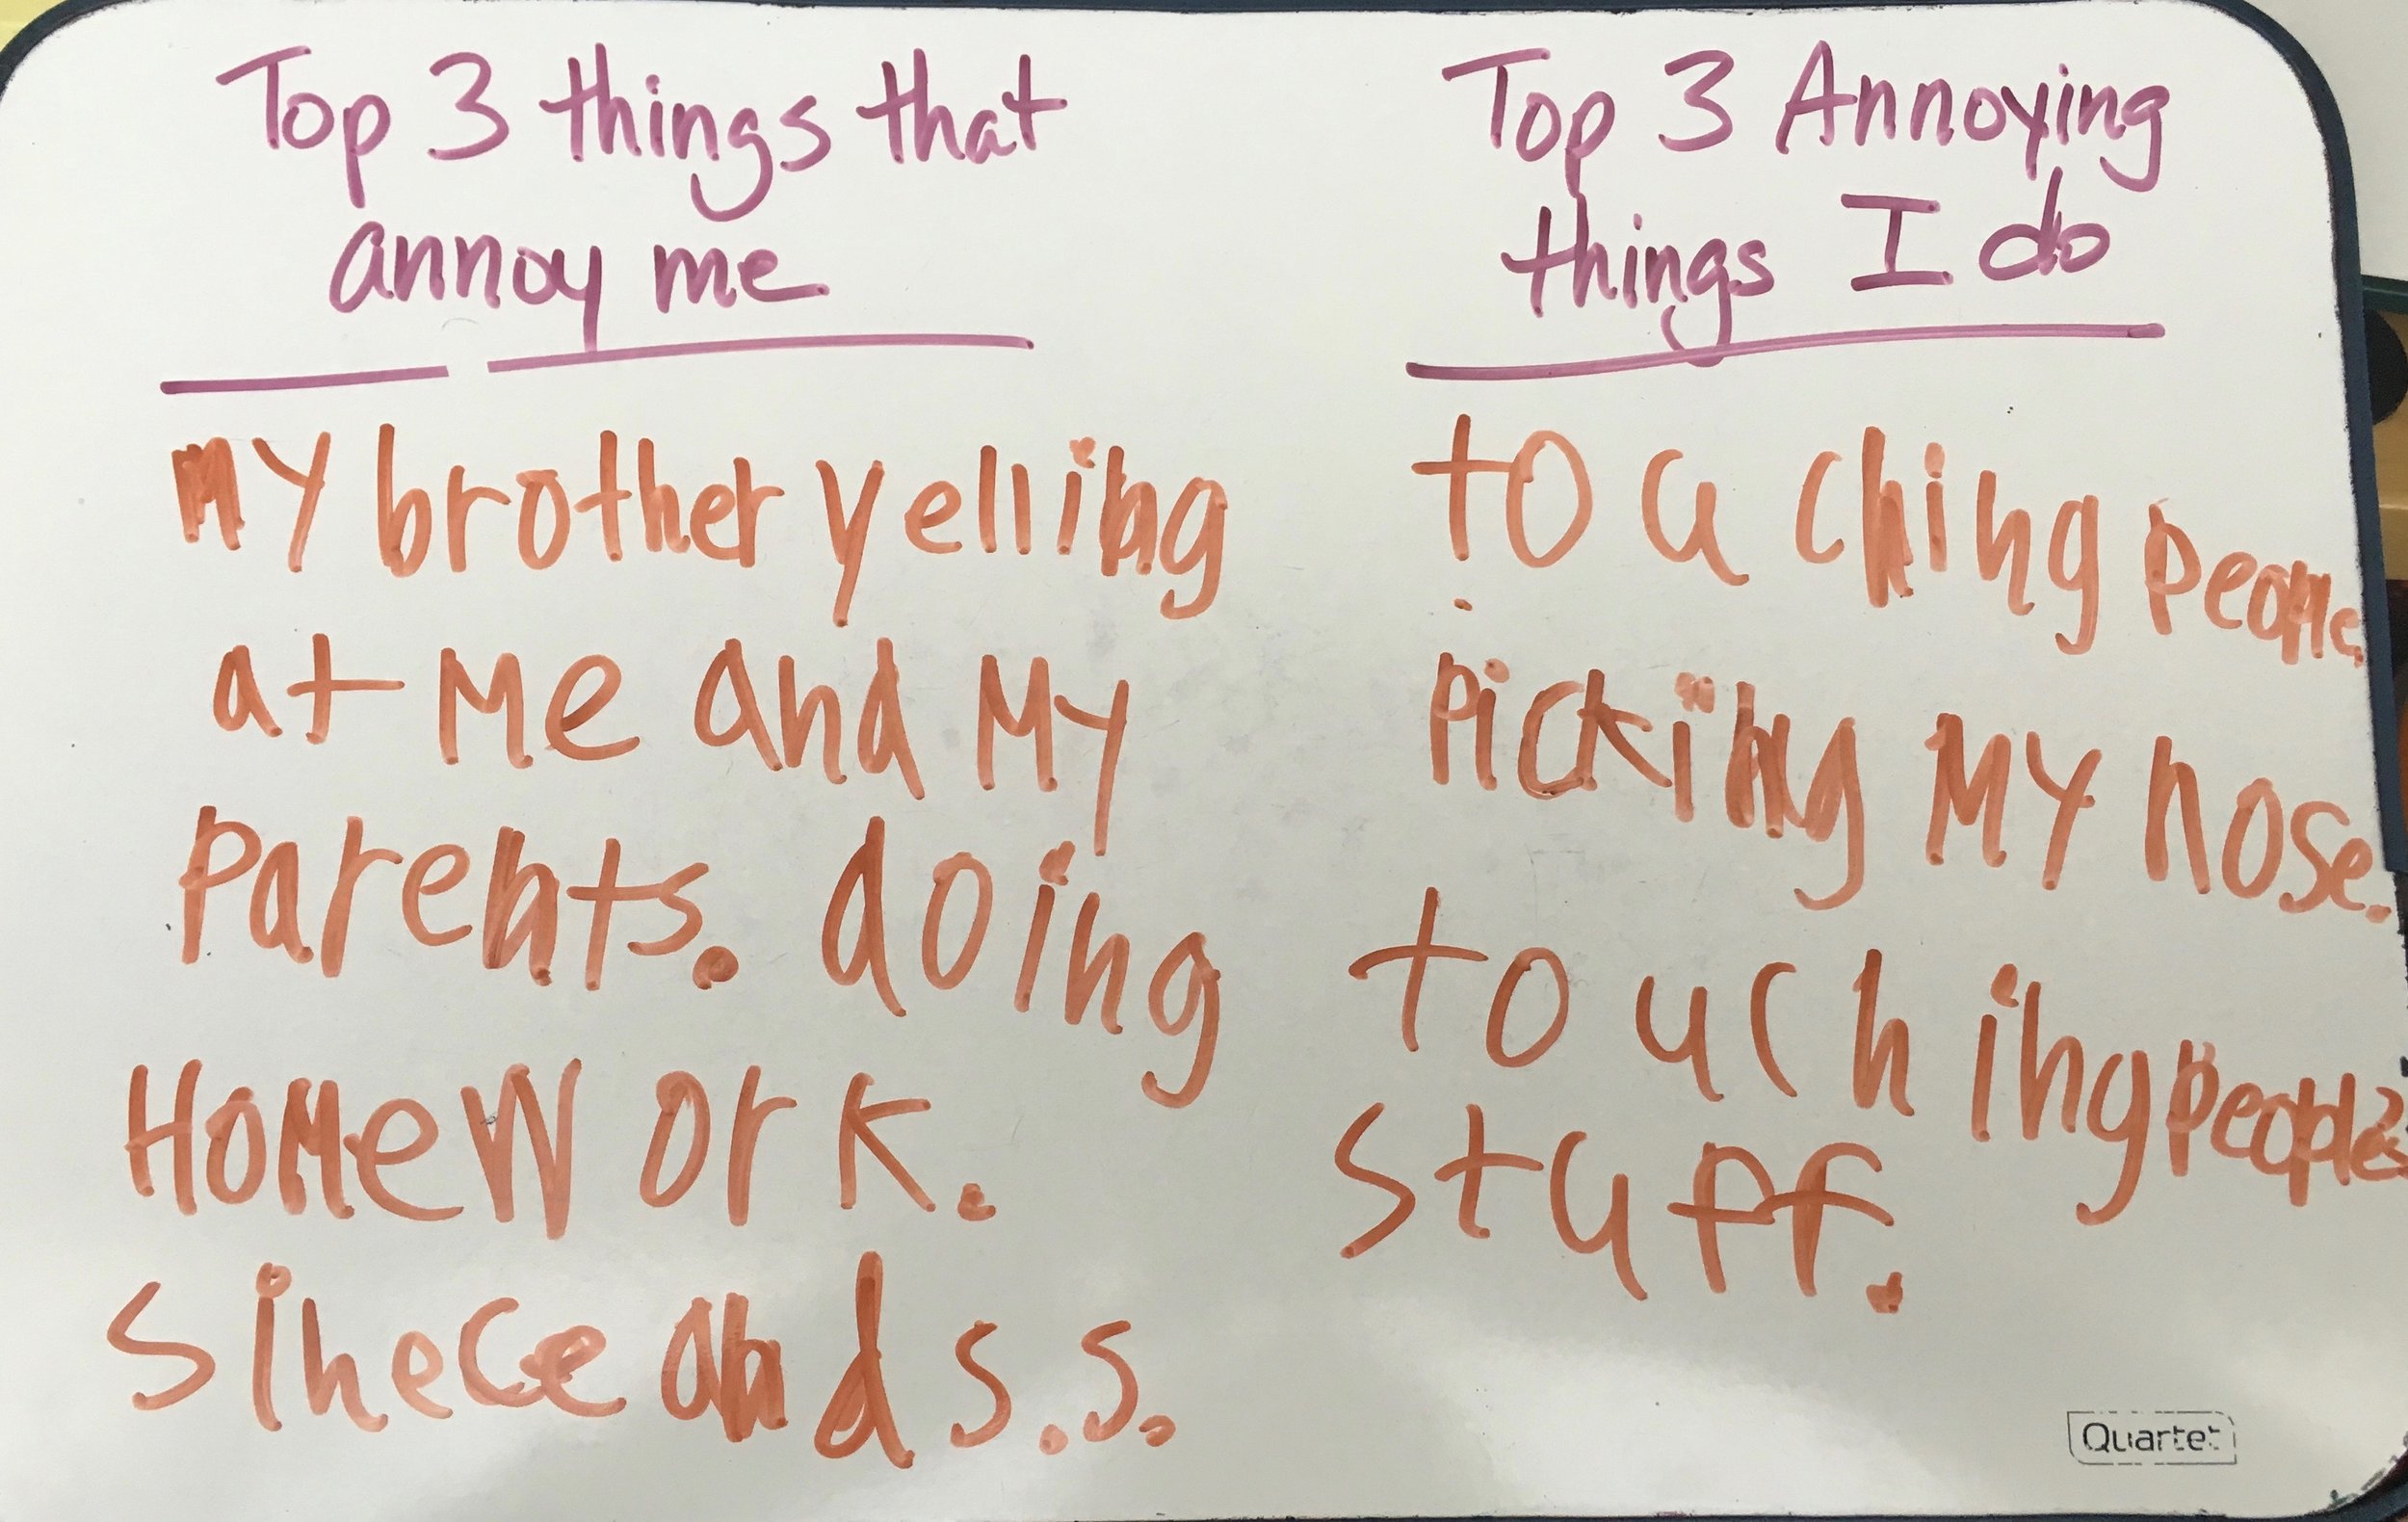 Top 3 things that
annoy me
MY brother yelling
at Me and My
Parents. doing
HoMeWork.
sinece and s.s.
Top 3 Annoying
things I do
touching people.
Picking MY nose.
touching peoples
stuff.
Quartet